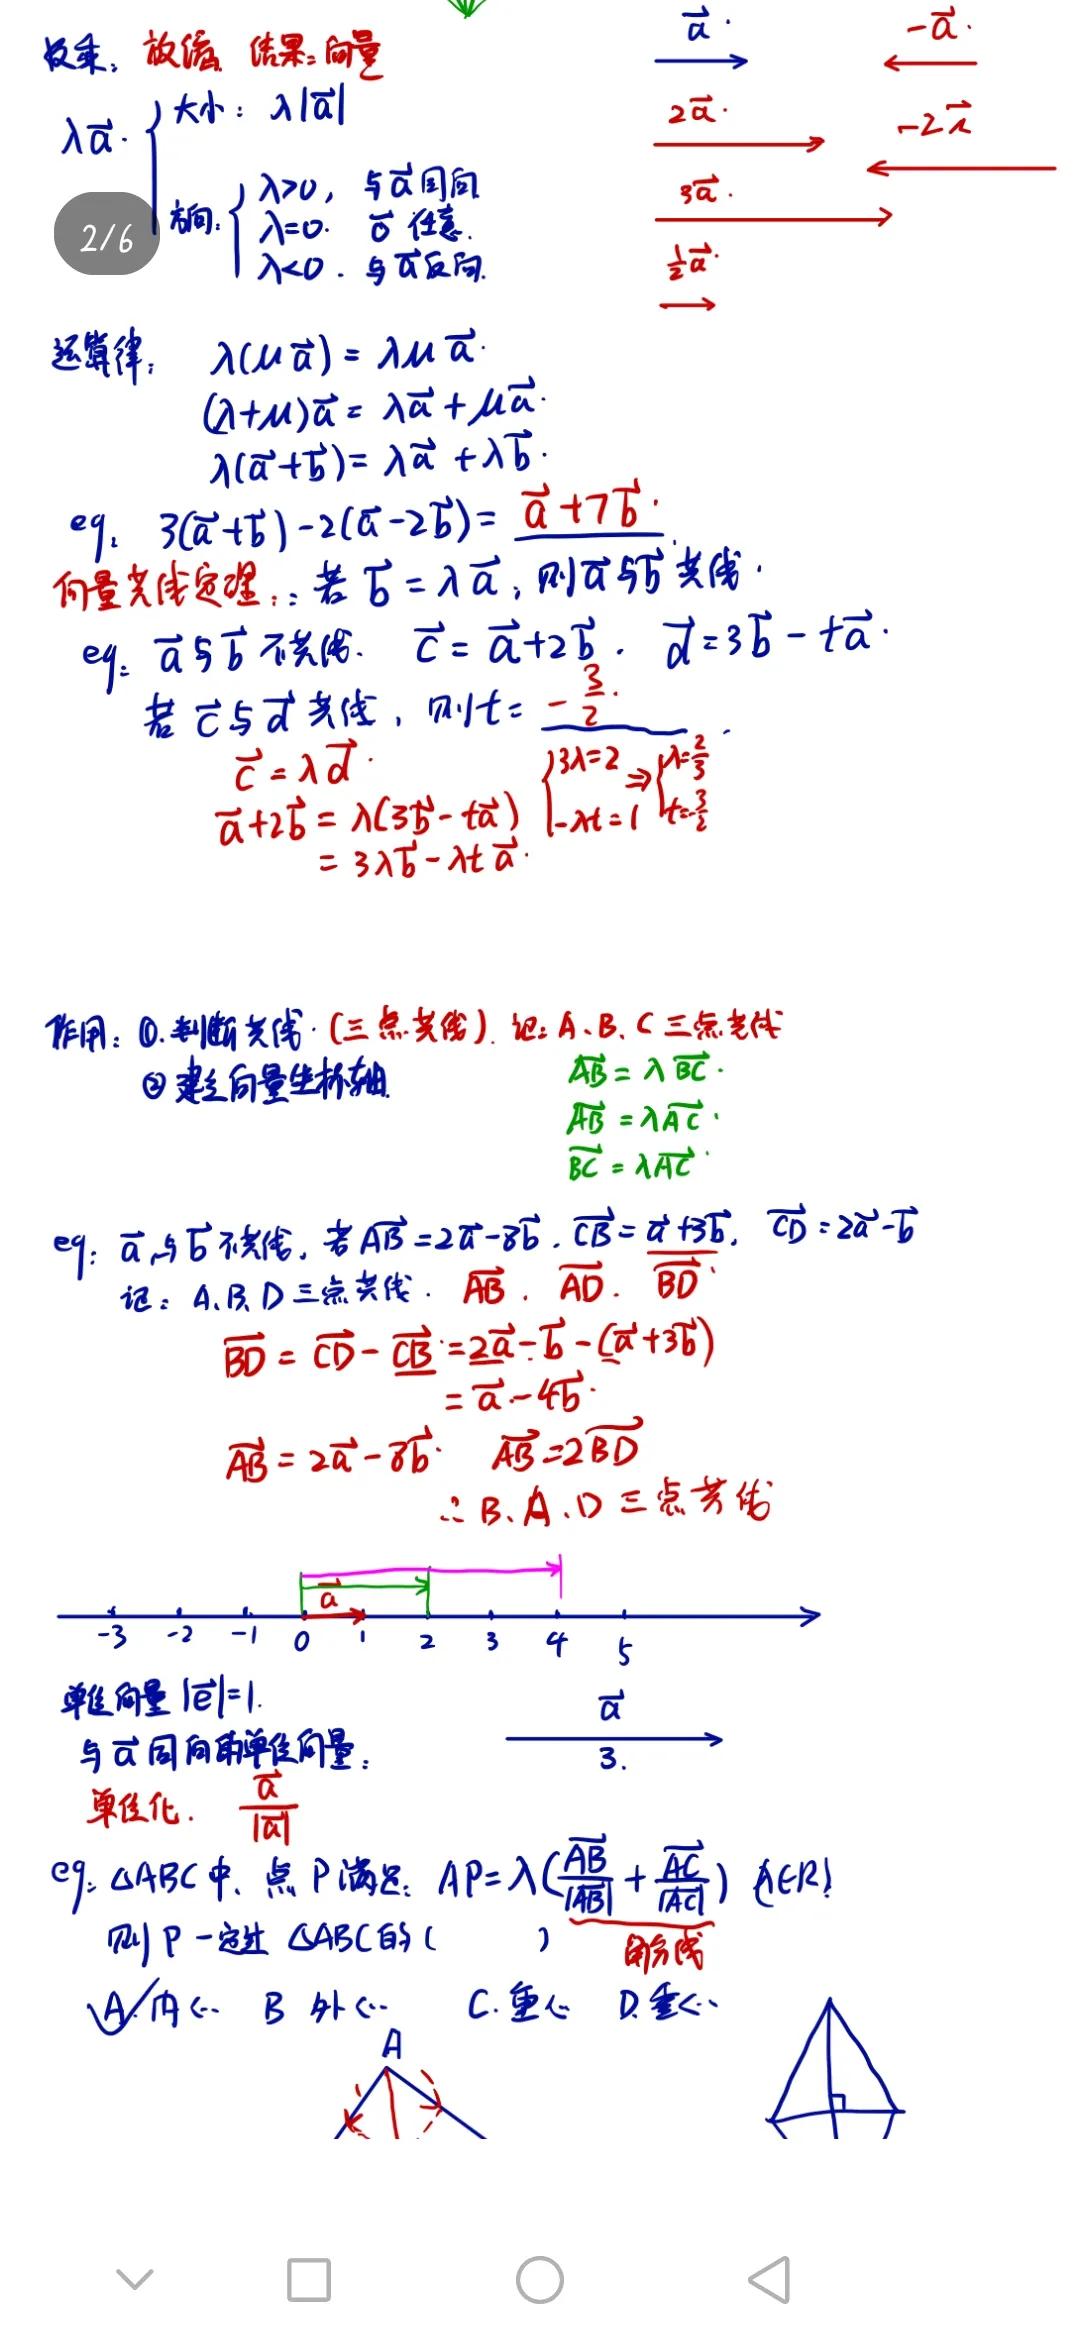 数乘：放缩 结果：向量
λa⃗ { 大小：λ|a⃗|
方向：{ λ>0，与a⃗同向
λ=0. 0⃗ 任意.
λ<0. 与a⃗反向.
a⃗
-a⃗
2a⃗
-2a⃗
3a⃗
½a⃗
2/6
运算律：λ(μa⃗) = λμa⃗
(λ+μ)a⃗ = λa⃗ + μa⃗
λ(a⃗+b⃗) = λa⃗ + λb⃗
eg: 3(a⃗+b⃗) - 2(a⃗-2b⃗) = a⃗+7b⃗
向量共线定理：若 b⃗ = λa⃗，则a⃗与b⃗共线.
eg: a⃗与b⃗不共线. c⃗ = a⃗+2b⃗. d⃗ = 3b⃗ - ta⃗
若 c⃗与d⃗共线，则t = -3/2
c⃗ = λd⃗
a⃗+2b⃗ = λ(3b⃗-ta⃗)
= 3λb⃗ - λta⃗
{ 3λ=2 ⇒ { λ=2/3
-λt=1 t=-3/2
作用：①.判断共线.(三点共线). 记：A、B、C三点共线
②建立向量坐标轴
AB⃗ = λBC⃗
AB⃗ = λAC⃗
BC⃗ = λAC⃗
eg: a⃗与b⃗不共线，若AB⃗ = 2a⃗-8b⃗. CB⃗ = a⃗+3b⃗, CD⃗ = 2a⃗-b⃗
记：A、B、D三点共线. AB⃗. AD⃗. BD⃗
BD⃗ = CD⃗ - CB⃗ = 2a⃗-b⃗-(a⃗+3b⃗)
= a⃗-4b⃗
AB⃗ = 2a⃗-8b⃗ AB⃗=2BD⃗
∴ B、A、D三点共线
a⃗
-3 -2 -1 0 1 2 3 4 5
单位向量 |e⃗|=1.
与a⃗同向的单位向量：
单位化. a⃗/|a⃗|
a⃗
3.
eg: △ABC中，点P满足：AP=λ(AB⃗/|AB⃗| + AC⃗/|AC⃗|) (λ∈R)
则P一定过△ABC的( )
角分线
A.内心 B 外心 C.重心 D.垂心
A